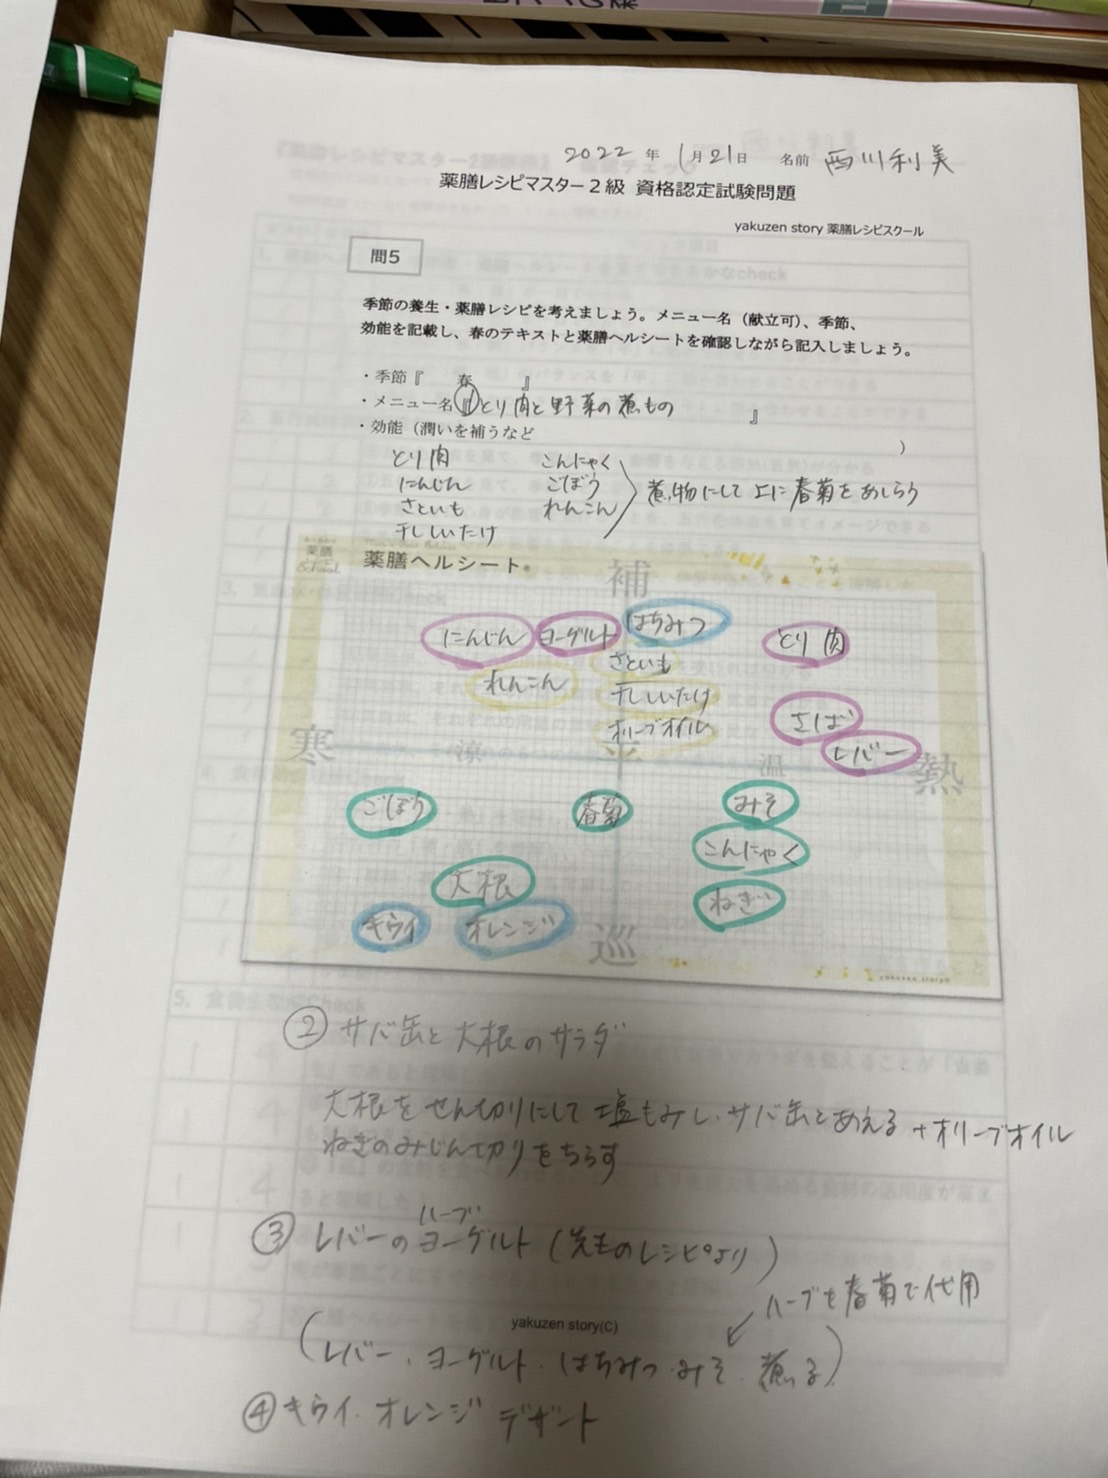 2022 年 1月21日 名前 西川利美
薬膳レシピマスター2級 資格認定試験問題
yakuzen story 薬膳レシピスクール
問5
季節の養生・薬膳レシピを考えましょう。メニュー名（献立可）、季節、
効能を記載し、春のテキストと薬膳ヘルシートを確認しながら記入しましょう。
・季節『 春 』
・メニュー名『①とり肉と野菜の煮もの 』
・効能（潤いを補うなど ）
とり肉 こんにゃく
にんじん ごぼう 煮物にして上に春菊をあしらう
さといも れんこん
干ししいたけ
薬膳ヘルシート
補
にんじん ヨーグルト はちみつ とり肉
さといも
れんこん 干ししいたけ さば
オリーブオイル レバー
寒 涼 平 温 熱
ごぼう 春菊 みそ
こんにゃく
大根 ねぎ
キウイ オレンジ 巡
yakuzen story
② サバ缶と大根のサラダ
大根をせん切りにして塩もみし、サバ缶とあえる +オリーブオイル
ねぎのみじん切りをちらす
ハーブ
③ レバーのヨーグルト(先ものレシピより)
ハーブを春菊で代用
yakuzen story(C)
(レバー、ヨーグルト、はちみつ、みそ、煮る)
④キウイ、オレンジ デザート